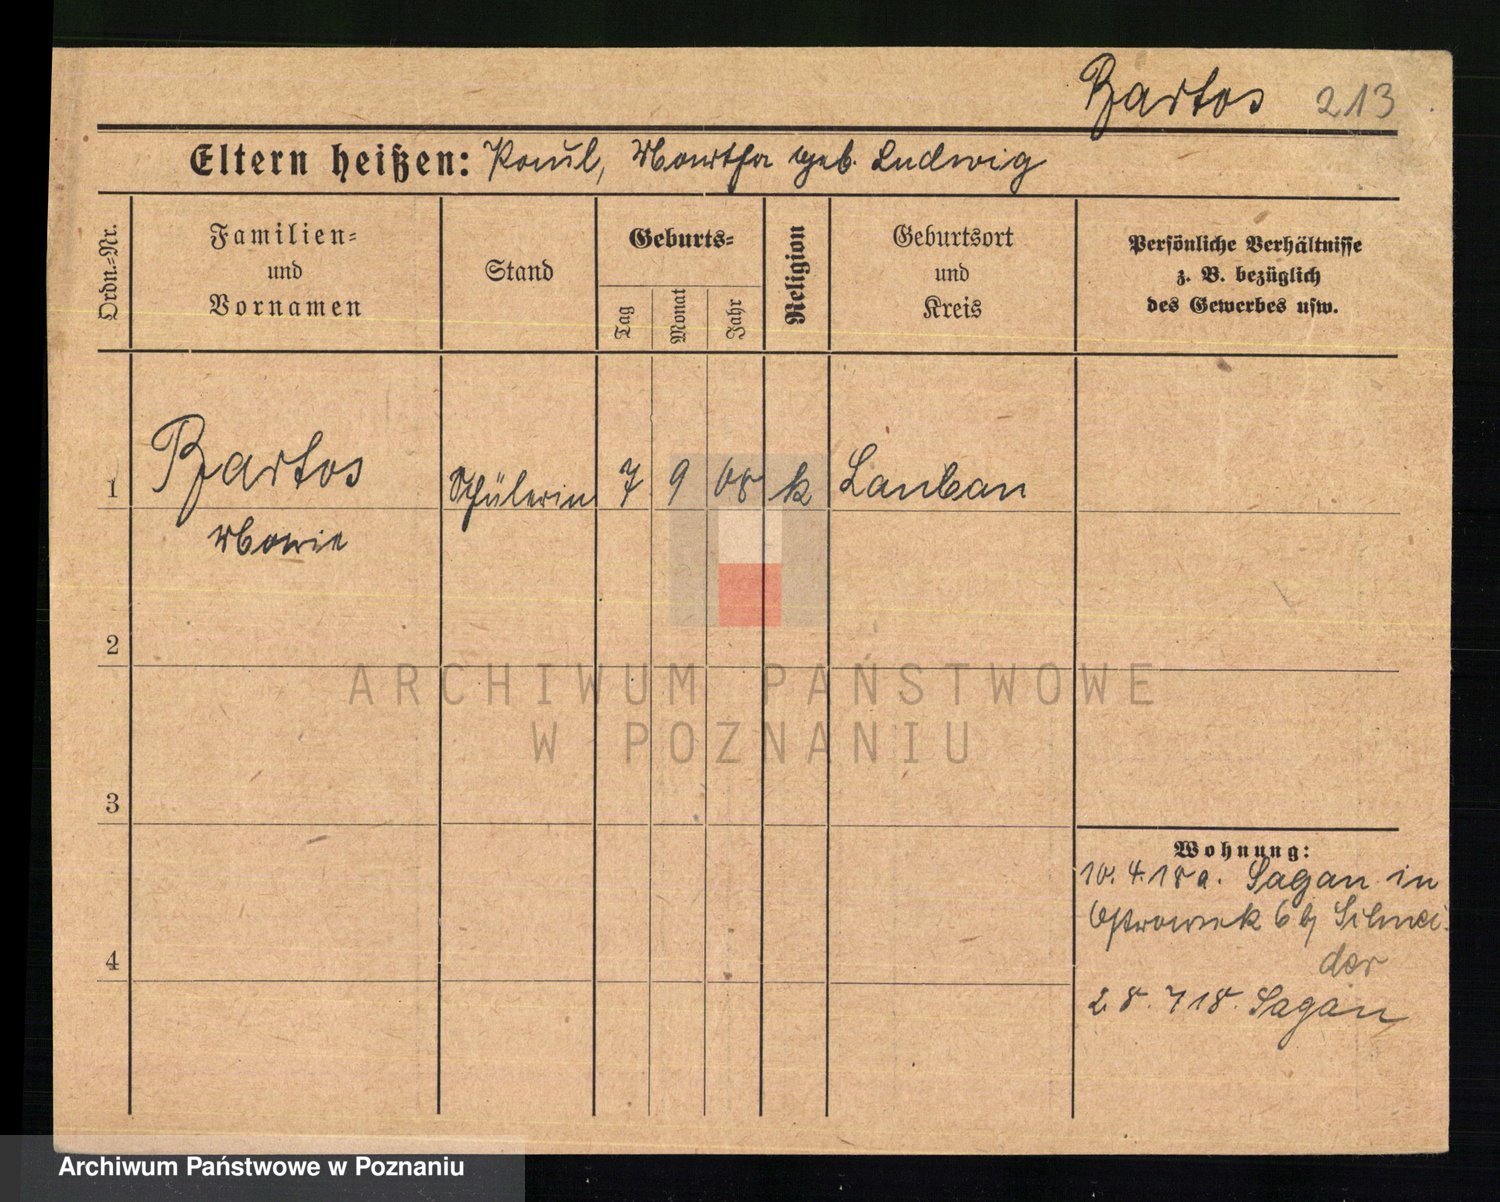 Bartos 213
Eltern heißen: Paul, Martha geb. Ludwig
Ordn.-Nr.
Familien-
und
Vornamen
Stand
Geburts-
Tag
Monat
Jahr
Religion
Geburtsort
und
Kreis
Persönliche Verhältnisse
z. B. bezüglich
des Gewerbes usw.
1
Bartos
Schülerin 7 9 08 k Lauban
Marie
2
3
4
Wohnung:
10. 4. 18 a. Sagan in
Ostrowek 6 b/ Schnei-
der
28. 7 18. Sagan
ARCHIWUM PAŃSTWOWE
W POZNANIU
Archiwum Państwowe w Poznaniu